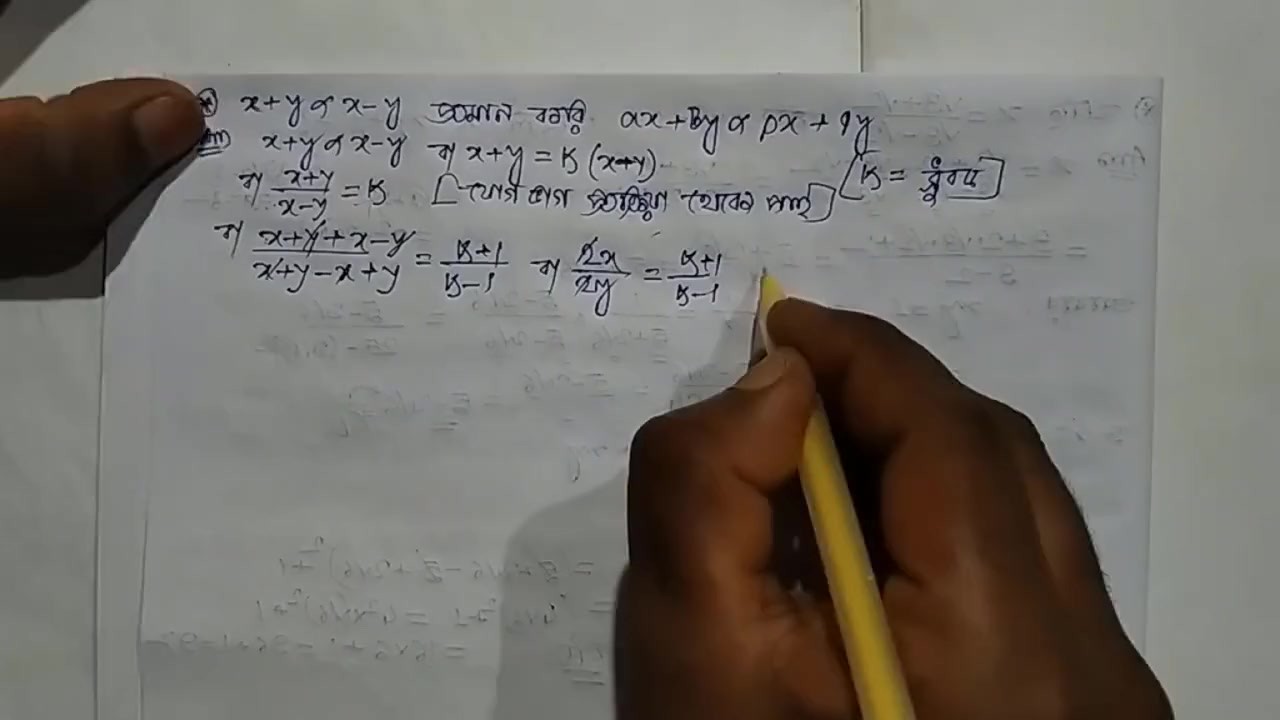 x+y∝x-y প্রমান করি ax+By∝px+qy
x+y∝x-y বা x+y=K(x-y) [K= ধ্রুবক]
বা (x+y)/(x-y)=K [যোগ ভাগ প্রক্রিয়া থেকে পাই]
বা (x+y+x-y)/(x+y-x+y)=(K+1)/(K-1) বা 2x/2y=(K+1)/(K-1)